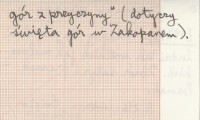 gór z przyczyny" (dotyczy
święta gór w Zakopanem).